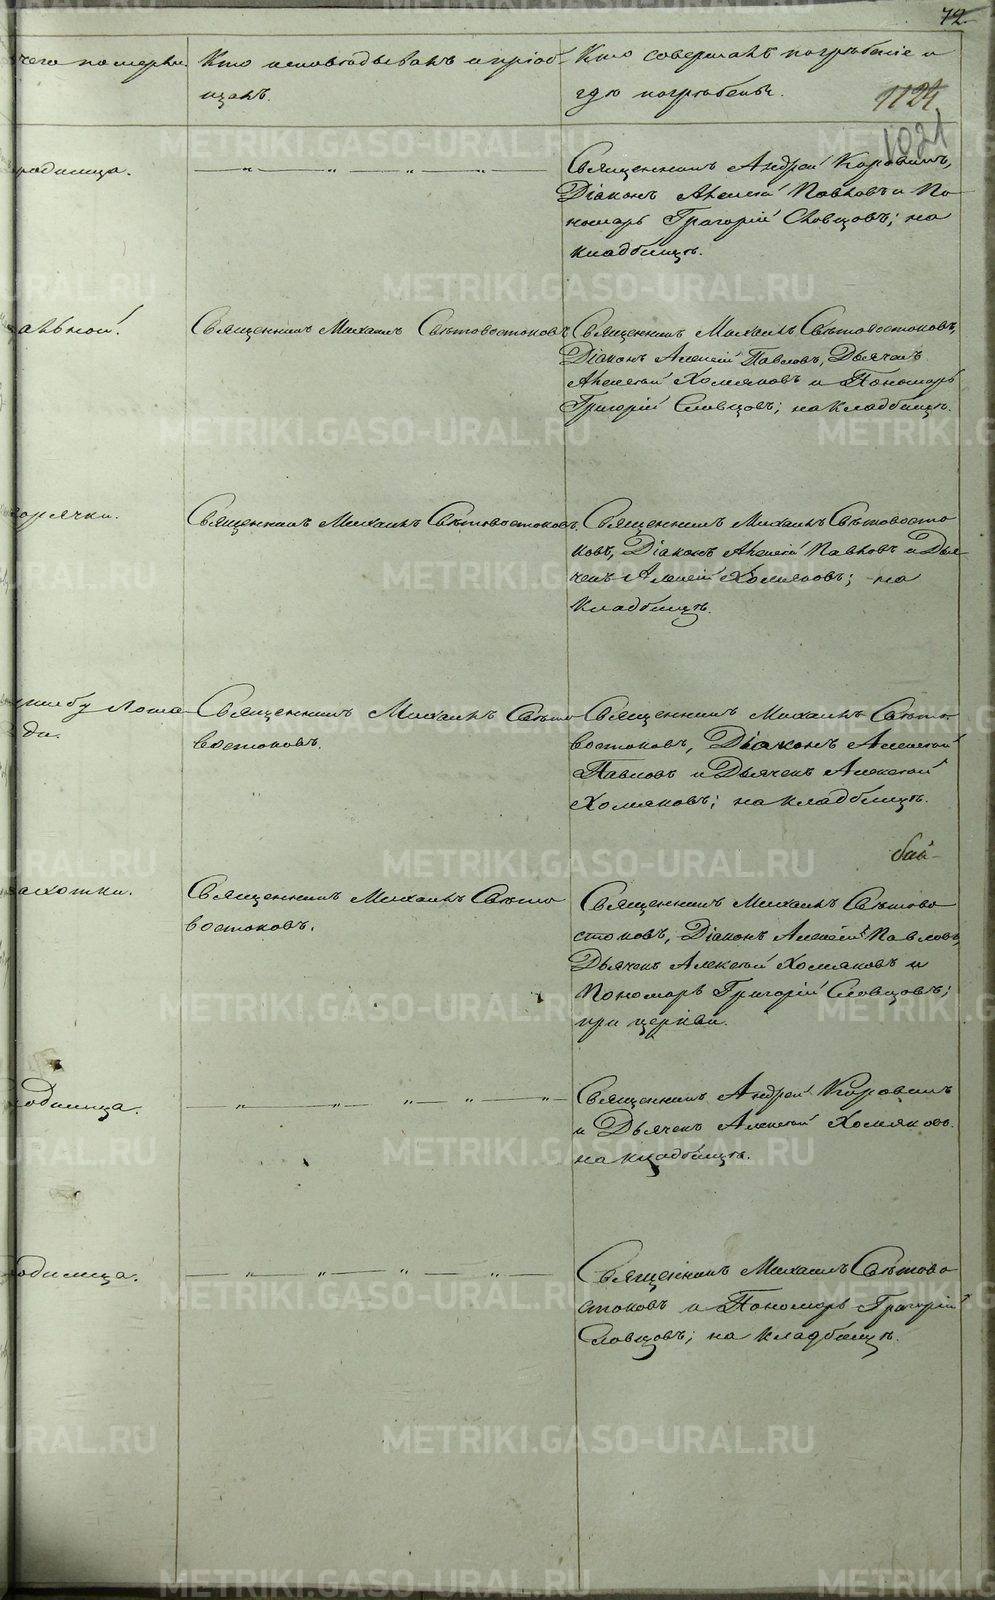 72.
чего померли.
Кто исповѣдывалъ и пріоб-
щалъ.
Кто совершалъ погребеніе и
гдѣ погребены.
1124
1021
родимца.
Священникъ Андрей Коровинъ,
Діаконъ Алексѣй Павловъ и По-
номарь Григорій Словцовъ; на
кладбищѣ.
Священникъ Михаилъ Свѣтовостоковъ
Священникъ Михаилъ Свѣтовостоковъ,
Діаконъ Алексѣй Павловъ, Дьячекъ
Алексѣй Хомяковъ и Пономарь
Григорій Словцовъ; на кладбищѣ.
горячки.
Священникъ Михаилъ Свѣтовостоковъ.
Священникъ Михаилъ Свѣтовосто
ковъ, Діаконъ Алексѣй Павловъ и Дья-
чекъ Алексѣй Хомяковъ; на
кладбищѣ.
лоша
ди.
Священникъ Михаилъ Свѣто
востоковъ.
Священникъ Михаилъ Свѣто-
востоковъ, Діаконъ Алексѣй
Павловъ и Дьячекъ Алексѣй
Хомяковъ; на кладбищѣ.
чахотки.
Священникъ Михаилъ Свѣто
востоковъ.
Священникъ Михаилъ Свѣтово
стоковъ, Діаконъ Алексѣй Павловъ,
Дьячекъ Алексѣй Хомяковъ и
Пономарь Григорій Словцовъ;
при церкви.
родимца.
Священникъ Андрей Коровинъ
и Дьячекъ Алексѣй Хомяковъ.
на кладбищѣ.
родимца.
Священникъ Михаилъ Свѣтово
стоковъ и Пономарь Григорій
Словцовъ; на кладбищѣ.
METRIKI.GASO-URAL.RU